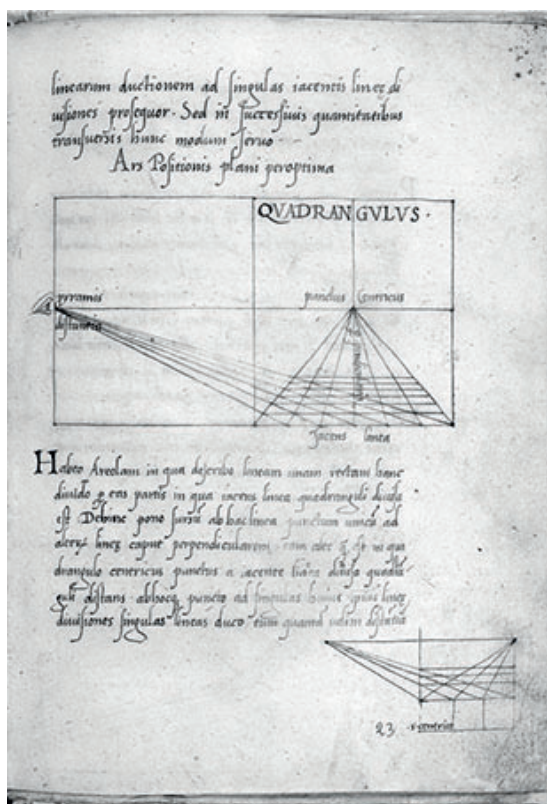 linearum ductionem ad singulas iacentis lineę di
uisiones prosequor. Sed in successiuis quantitatibus
transuersis hunc modum seruo
Ars Positionis plani peroptima
QVADRANGVLVS.
pyramis
punctus Centricus
distantia
Jacens linea
Habeo Areolam in qua describo lineam unam rectam hanc
diuido eas partis in qua iacens linea quadranguli diuisa
est Dehinc pono sursū ab hac linea punctum unicū ad
lineę caput perpendicularem tam in qua
drangulo centricus punctus a iacente diuisa quadrā
distans ab hocque puncto ad singulas huius ipsius lineę
diuisiones singulas lineas duco tum quantā uelim distātiā
23
centric